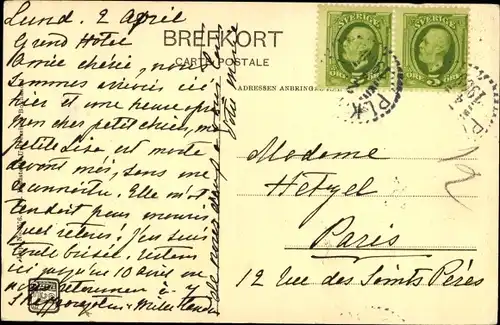 Lund, 2 April
Grand Hotel
BREFKORT
CARTE POSTALE
SVERIGE SVERIGE
5 ÖRE 5 ÖRE
Amie chérie, nous
sommes arrivés ici
hier et une heure après
mon cher petit chien, ma
petite Lise est morte
devant moi, sans me
reconnaître. Elle m'at
tendait pour mourir
Quel retour! J'en suis
toute brisée. restons
ici jusqu'au 10 Avril
retournerons à
ADRESSEN ANBRINGAS
PLK
Madame
Hetzel
Paris
12 rue des Saints Pères
12